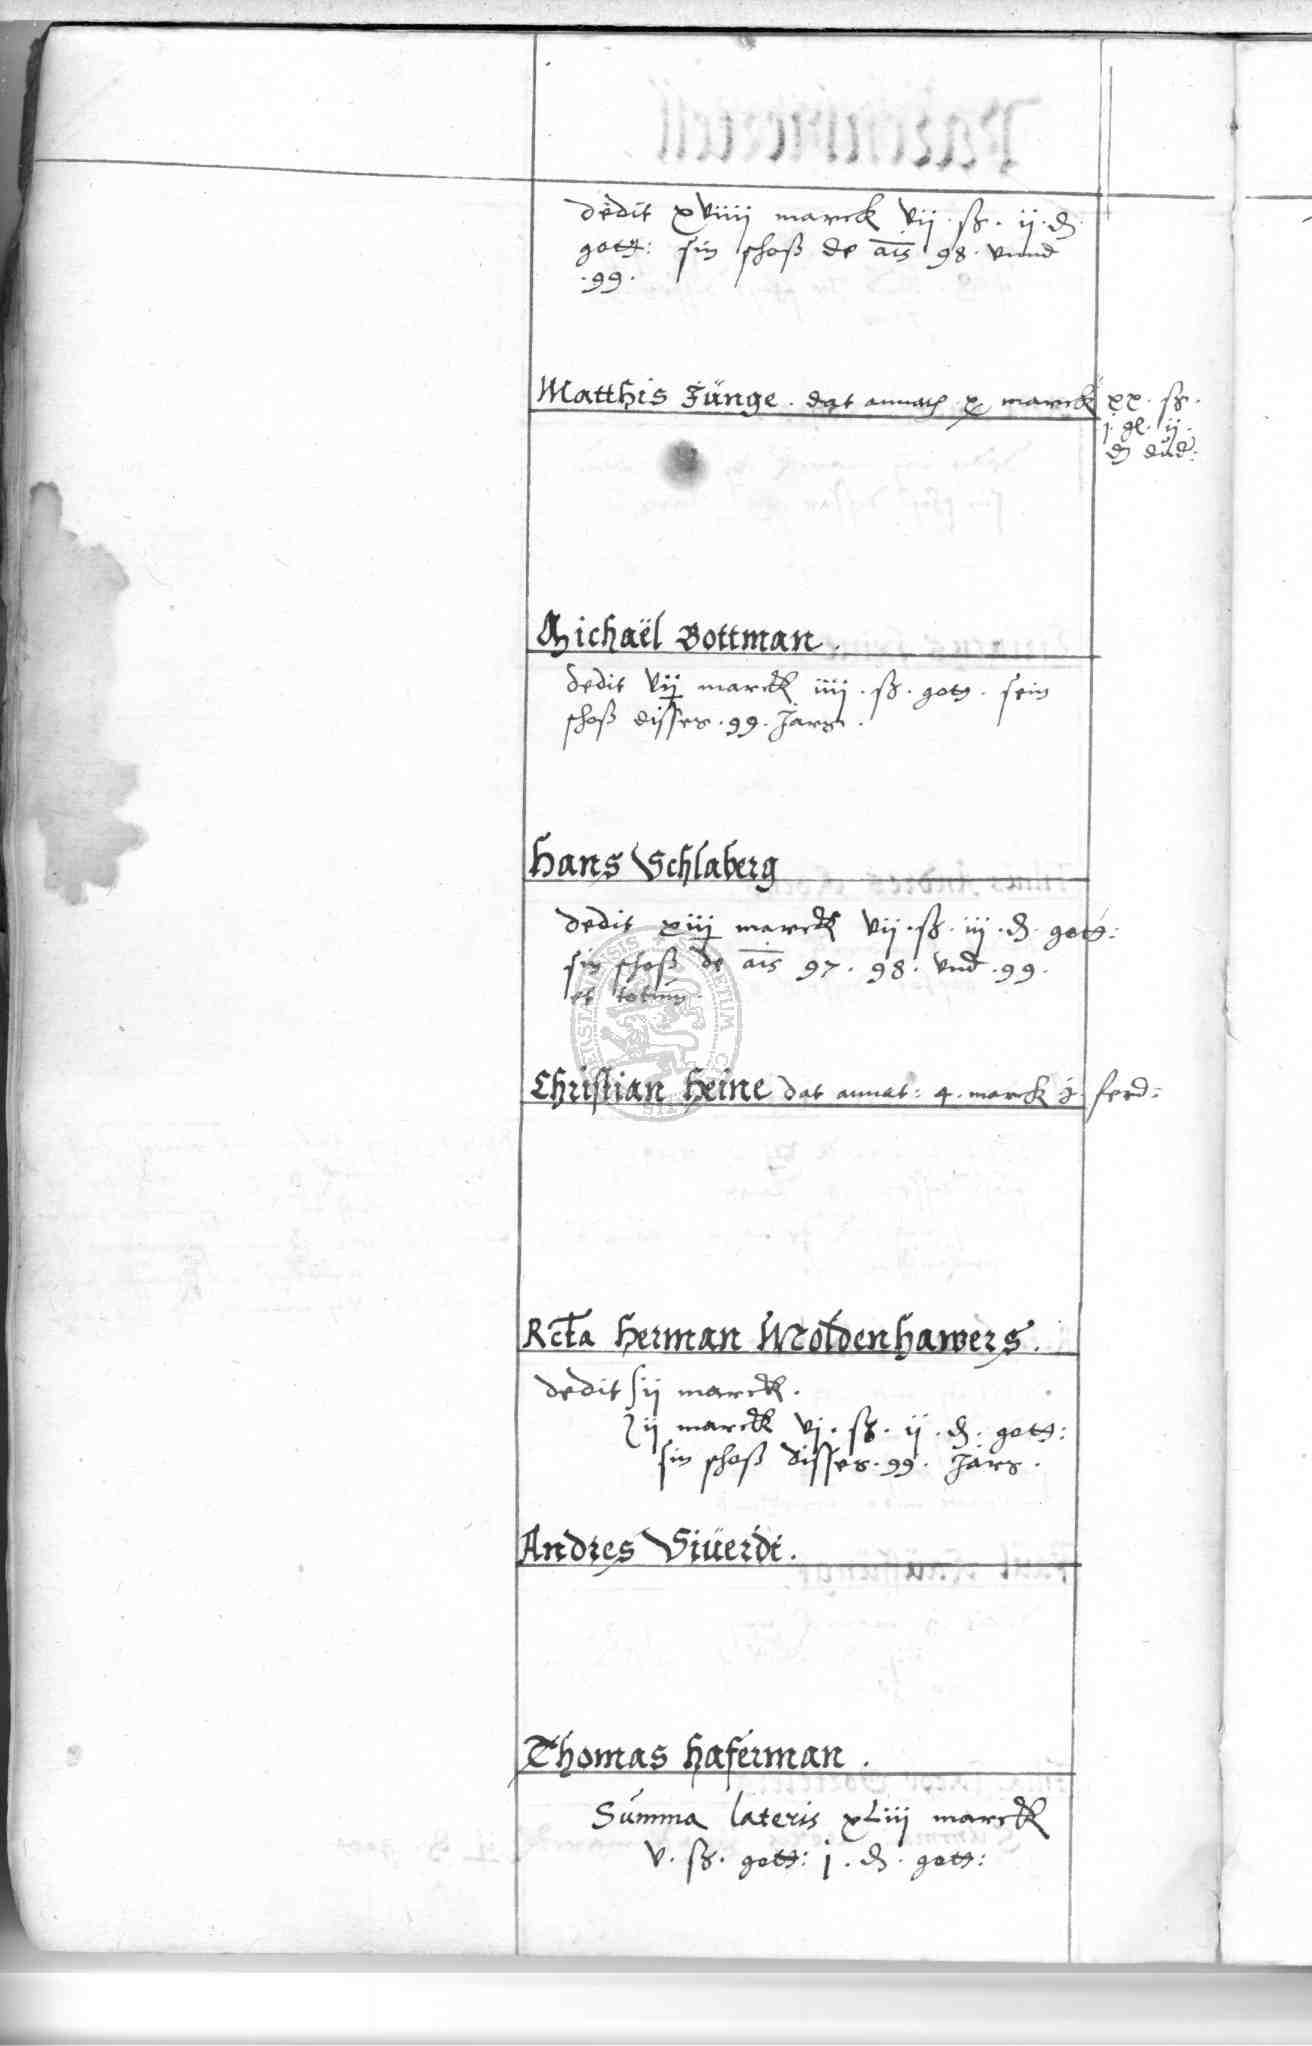 dedit xviiii marck vij. ß. ij. d.
gotg: sin schoß de ais 98. vnnd
.99.
Matthis Jünge. dat annat. x marck xx. ß.
j. gl. ij.
d
Michaël Bottman.
dedit vij marck iiij. ß. gotg. sein
schoß disses. 99. Jars.
Hans Schlaberg
dedit xiij marck vij. ß. iij. d. gotg:
sin schoß de ais 97. 98. vnd. 99.
et totum
Christian Heine dat annat: 4. marck j. ferd:
Rcta Herman Moldenhawers.
dedit ij marck.
ij marck vj. ß. ij. d. gotg:
sin schoß disses. 99. Jars.
Andres Siuerdt.
Thomas Haferman.
Summa lateris xLiij marck
v. ß. gotg: j. d. gotg: